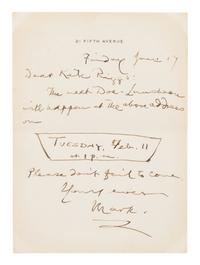 21 FIFTH AVENUE
Friday Jan 17
Dear Kate Riggs:
The next Doe-Luncheon
will happen at the above address
on
TUESDAY, Feb. 11
at 1 p.m.
Please don't fail to come
Yours ever
Mark.